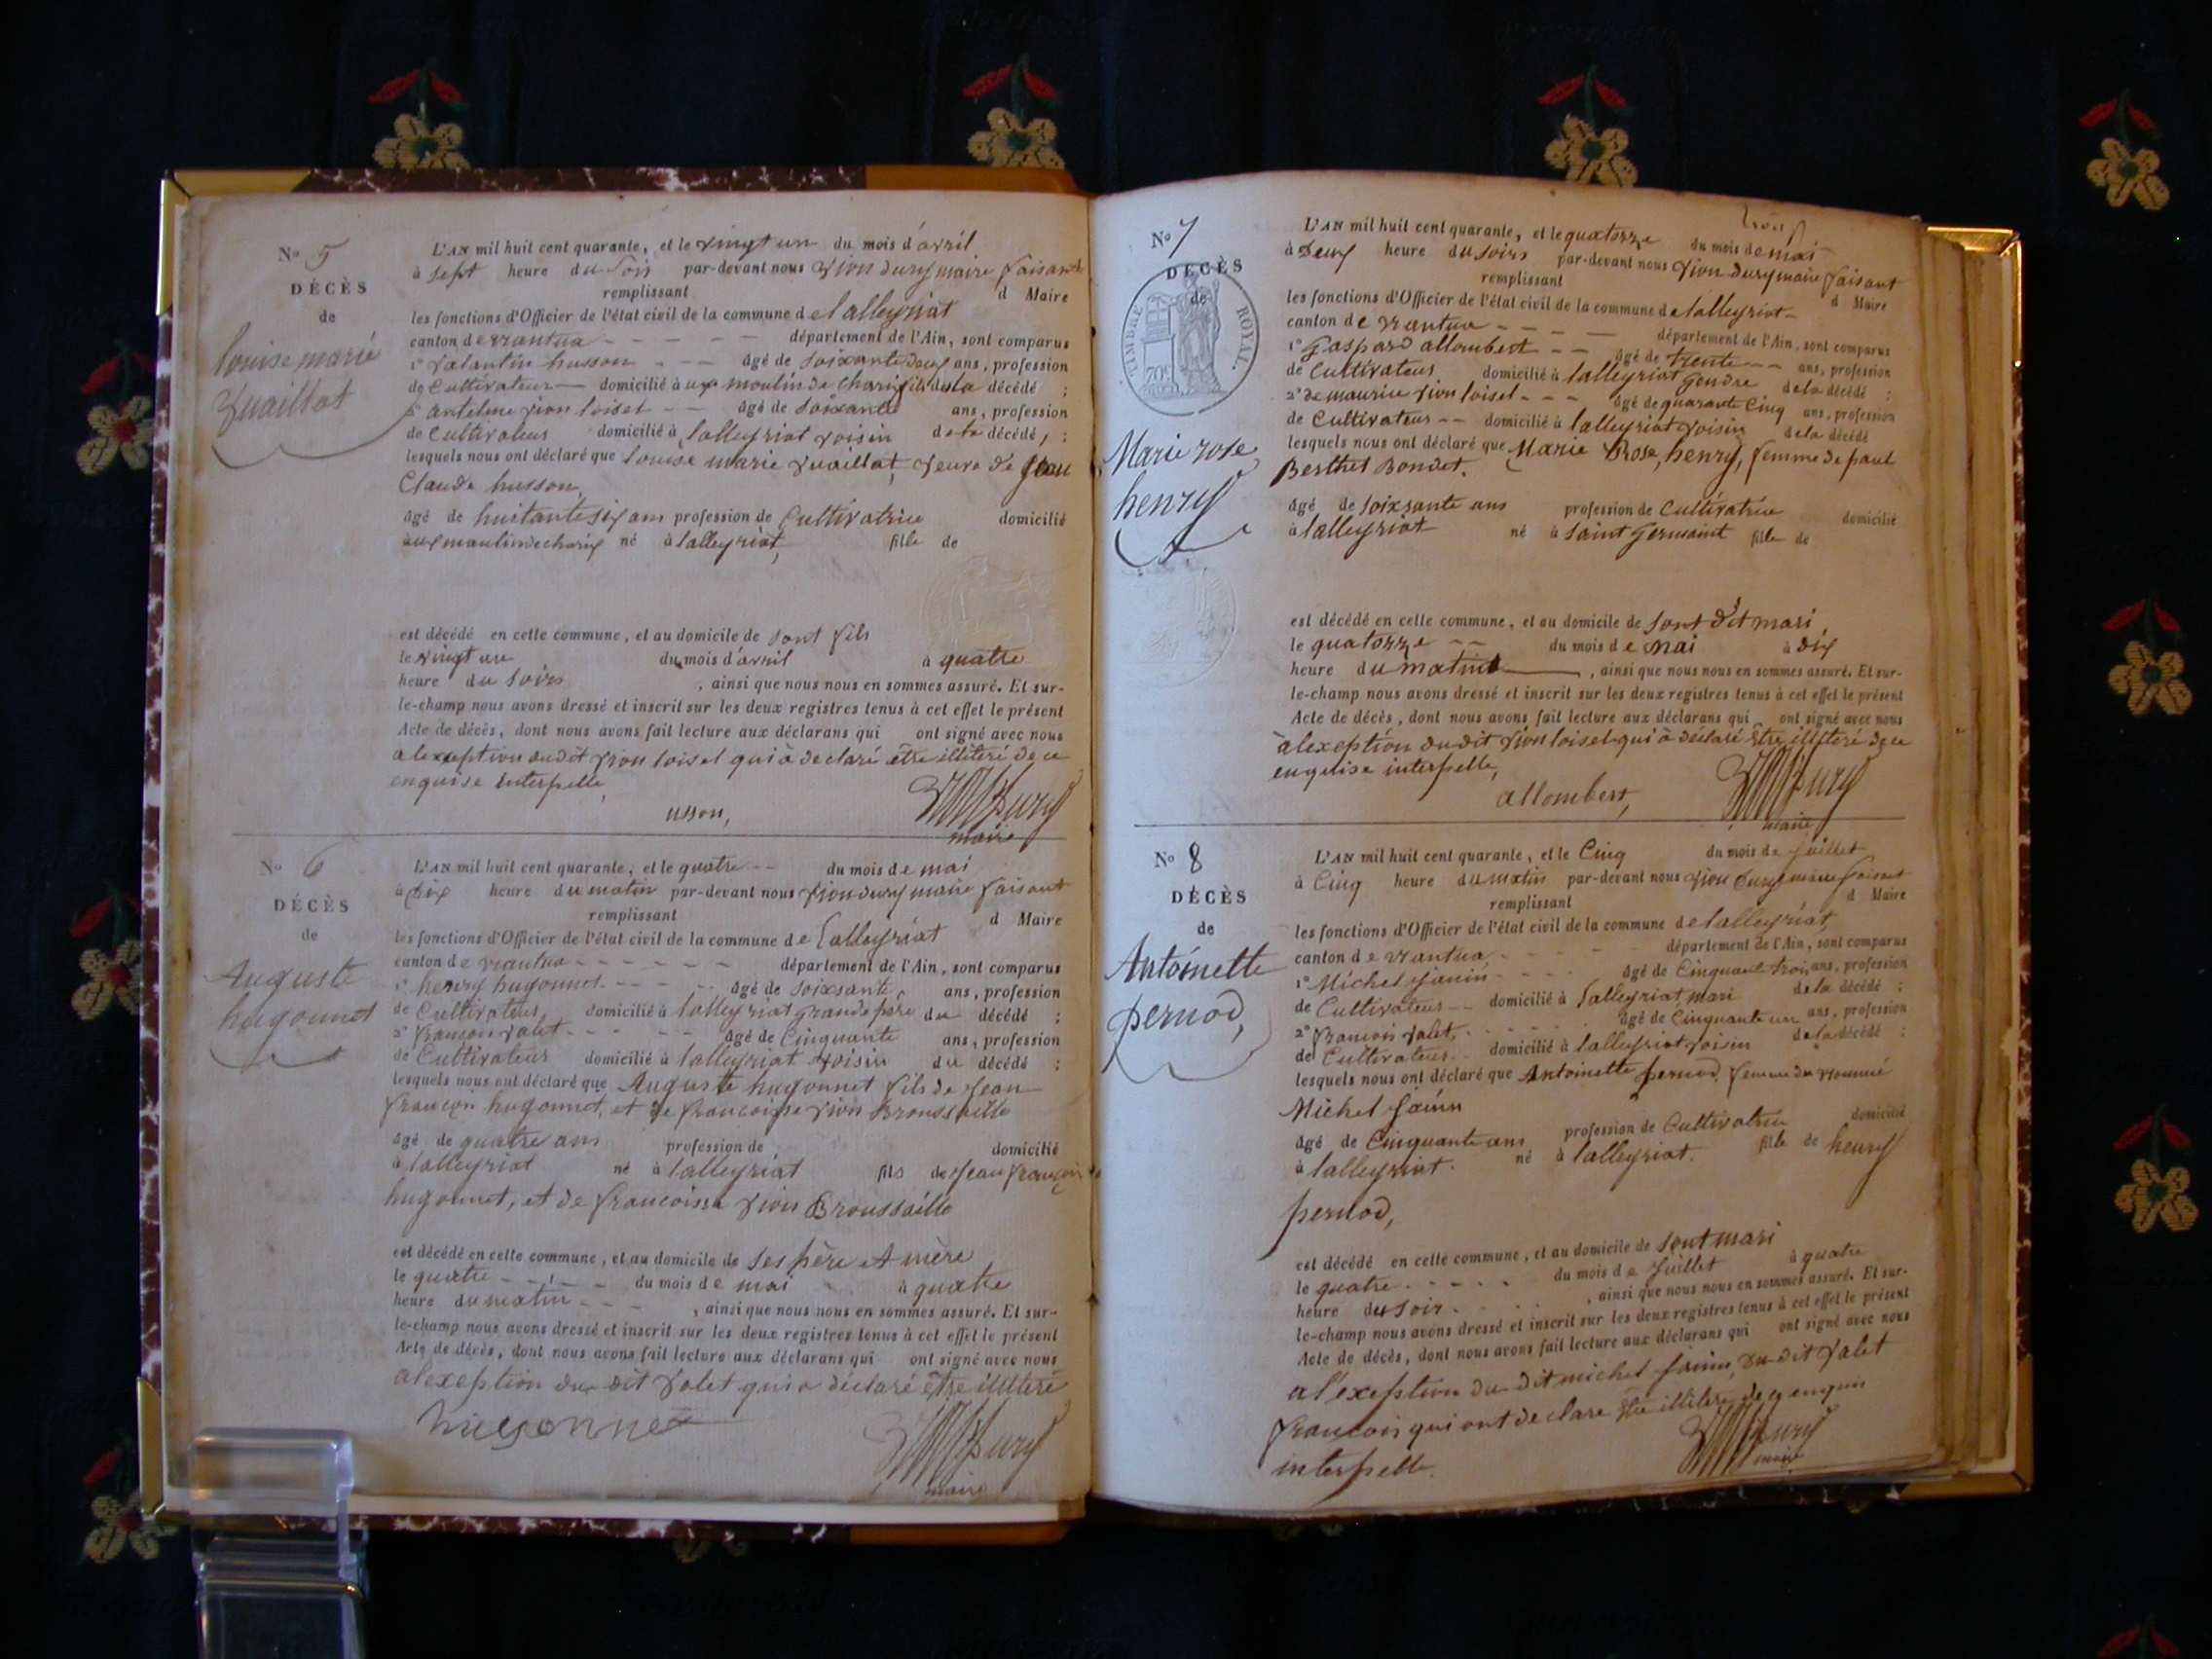 No 5
DÉCÈS
de
louise marie
Vuaillat
L'AN mil huit cent quarante, et le vingt un du mois d'avril
à sept heure du soir par-devant nous Vion Dury maire faisant
remplissant d Maire
les fonctions d'Officier de l'état civil de la commune de lalleyriat
canton de nantua département de l'Ain, sont comparus
1° valantin husson âgé de soixante deux ans, profession
de Cultivateur domicilié à aux moulin de charix fils de la décédé ;
2° antelme vion loisel âgé de soixante ans, profession
de Cultivateur domicilié à lalleyriat voisin de la décédé, ;
lesquels nous ont déclaré que louise marie vuaillat, veuve de Jean
Claude husson,
âgé de huitante six ans profession de Cultivatrice domicilié
aux moulin de charix né à lalleyriat, fille de
est décédé en cette commune, et au domicile de sont fils
le vingt un du mois d'avril à quatre
heure du soirs , ainsi que nous nous en sommes assuré. Et sur-
le-champ nous avons dressé et inscrit sur les deux registres tenus à cet effet le présent
Acte de décès, dont nous avons fait lecture aux déclarans qui ont signé avec nous
a lexception du dit vion loisel qui à declaré être illiteré de ce
enquise interpelle,
usson, Dury
maire
No 6
DÉCÈS
de
Auguste
hugonnet
L'AN mil huit cent quarante, et le quatre du mois de mai
à Dix heure du matin par-devant nous vion Dury maire faisant
remplissant d Maire
les fonctions d'Officier de l'état civil de la commune de Lalleyriat
canton de nantua département de l'Ain, sont comparus
1° henry hugonnet âgé de soixsante, ans, profession
de Cultivateur domicilié à lalleyriat grande père du décédé ;
2° francois valet âgé de Cinquante ans, profession
de Cultivateur domicilié à lalleyriat voisin du décédé ;
lesquels nous ont déclaré que Auguste hugonnet fils de Jean
françois hugonnet, et de francoisse vion Broussaille
âgé de quatre ans profession de domicilié
à lalleyriat né à lalleyriat fils de Jean françois
hugonnet, et de francoisse vion Broussaille
est décédé en cette commune, et au domicile de ses père et mère
le quatre du mois de mai à quatre
heure du matin , ainsi que nous nous en sommes assuré. Et sur-
le-champ nous avons dressé et inscrit sur les deux registres tenus à cet effet le présent
Acte de décès, dont nous avons fait lecture aux déclarans qui ont signé avec nous
a lexeption du dit valet qui a déclaré être illiteré
hugonnet Dury
maire
No 7
DÉCÈS
de
TIMBRE ROYAL
70c
Marie rose
henry
L'AN mil huit cent quarante, et le quatorze du mois de mai
à Deux heure du soirs par-devant nous vion Dury maire faisant
remplissant d Maire
les fonctions d'Officier de l'état civil de la commune de lalleyriat
canton de nantua département de l'Ain, sont comparus
1° Gaspard allombert âgé de trente ans, profession
de Cultivateur domicilié à lalleyriat Gendre de la décédé ;
2° de maurice vion loisel âgé de quarante Cinq ans, profession
de Cultivateur domicilié à lalleyriat voisin de la décédé
lesquels nous ont déclaré que Marie Rose, henry, femme de paul
Berthet Bondet.
âgé de soixsante ans profession de Cultivatrice domicilié
à lalleyriat né à Saint Germaint fille de
est décédé en cette commune, et au domicile de sont dit mari,
le quatorze du mois de mai à dix
heure du matind , ainsi que nous nous en sommes assuré. Et sur-
le-champ nous avons dressé et inscrit sur les deux registres tenus à cet effet le présent
Acte de décès, dont nous avons fait lecture aux déclarans qui ont signé avec nous
à lexeption du dit vion loisel qui à déclaré être illiteré de ce
enquise interpelle,
allombert, Dury
maire
No 8
DÉCÈS
de
Antoinette
pernod,
L'AN mil huit cent quarante, et le Cinq du mois de Juillet
à Cinq heure du matin par-devant nous vion Dury maire faisant
remplissant d Maire
les fonctions d'Officier de l'état civil de la commune de lalleyriat,
canton de nantua département de l'Ain, sont comparus
1° Michel Janin âgé de Cinquant trois ans, profession
de Cultivateur domicilié à lalleyriat mari de la décédé ;
2° francois valet, âgé de Cinquante un ans, profession
de Cultivateur domicilié à lalleyriat voisin de la décédé ;
lesquels nous ont déclaré que Antoinette pernod, femme du nommé
Michel Janin
âgé de Cinquante ans profession de Cultivatrice domicilié
à lalleyriat. né à lalleyriat. fille de henry
pernod,
est décédé en cette commune, et au domicile de sont mari
le quatre du mois de Juillet à quatre
heure du soir , ainsi que nous nous en sommes assuré. Et sur-
le-champ nous avons dressé et inscrit sur les deux registres tenus à cet effet le présent
Acte de décès, dont nous avons fait lecture aux déclarans qui ont signé avec nous
a l'exeption du dit michel Janin, du dit valet
francois qui ont declare être illitere de ce enquis
interpelle. Dury
maire